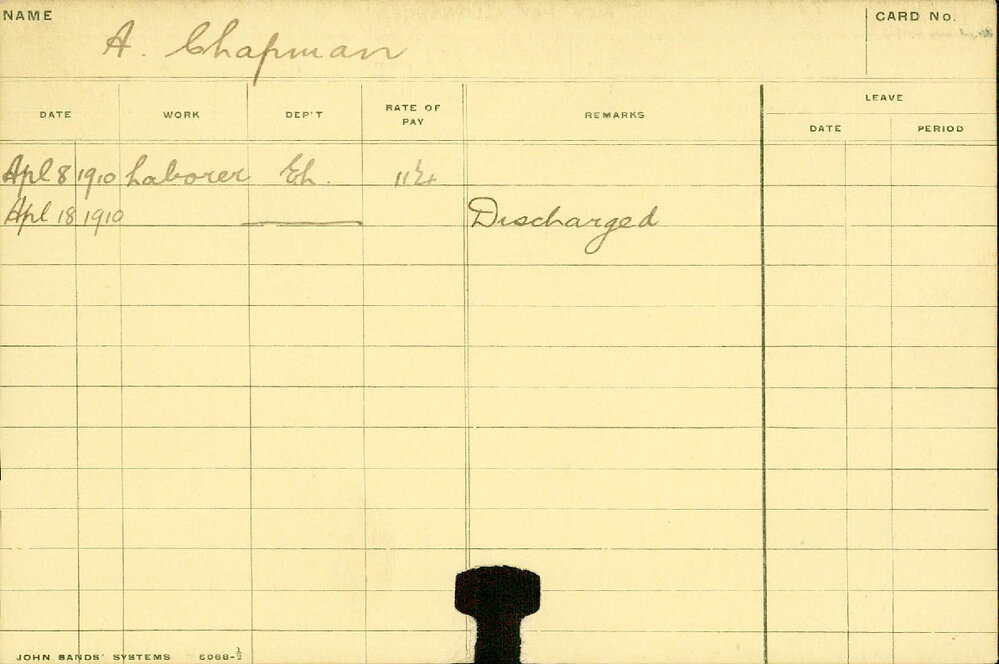 NAME
A. Chapman
CARD No.
DATE WORK DEP'T RATE OF PAY REMARKS LEAVE
DATE PERIOD
Apl 8 1910 Laborer Eh.
Apl 18 1910 Discharged
JOHN SANDS' SYSTEMS 5068-½